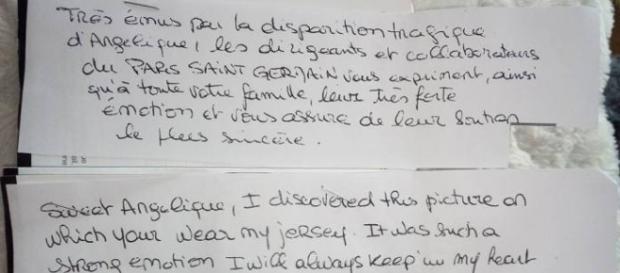 TRÈS émus par la disparition tragique
d'Angélique, les dirigeants et collaborateurs
du PARIS SAINT GERMAIN vous expriment, ainsi
qu'à toute votre famille, leur très forte
émotion et vous assure de leur soutien
le plus sincère.
Sweet Angelique, I discovered this picture on
which your wear my jersey. It was such a
strong emotion I will always keep in my heart